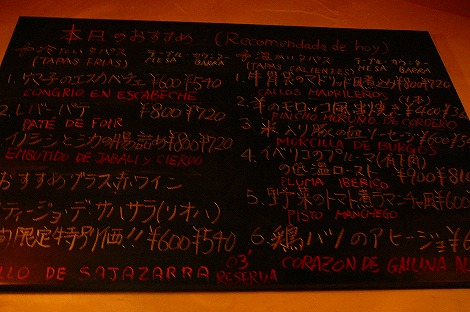 本日のおすすめ (Recomendada de hoy)
冷たいタパス テーブル カウンター
(TAPAS FRIAS) MESA BARRA
1. 穴子のエスカベッチェ ¥600 ¥540
CONGRIO EN ESCABECHE
2. レバーパテ ¥800 ¥720
PATE DE FOIR
イノシシとシカの腸詰め ¥800 ¥720
EMBUTIDO DE JABALI y CIERVO
おすすめグラス赤ワイン
ティージョ・デ・サハサラ(リオハ)
限定特別価格!! ¥600 ¥540
LLO DE SAJAZARRA 03' RESERVA
温かいタパス テーブル カウンター
(TAPAS CALIENTES) MESA BARRA
1. 牛胃袋のマドリッド風煮込み ¥800 ¥720
CALLOS MADRILEÑOS
2. 羊のモロッコ風串焼き
PINCHO MORUNO DE CORDERO
3. 米入り豚の血ソーセージ ¥600
MORCILLA DE BURGOS
4. イベリコのプルーマ
の低温ロースト ¥900 ¥810
PLUMA IBERICO
5. 野菜のトマト煮 ラ・マンチャ風 ¥600
PISTO MANCHEGO
6. 鶏ハツのアヒージョ ¥6
CORAZON DE GALLINA AL